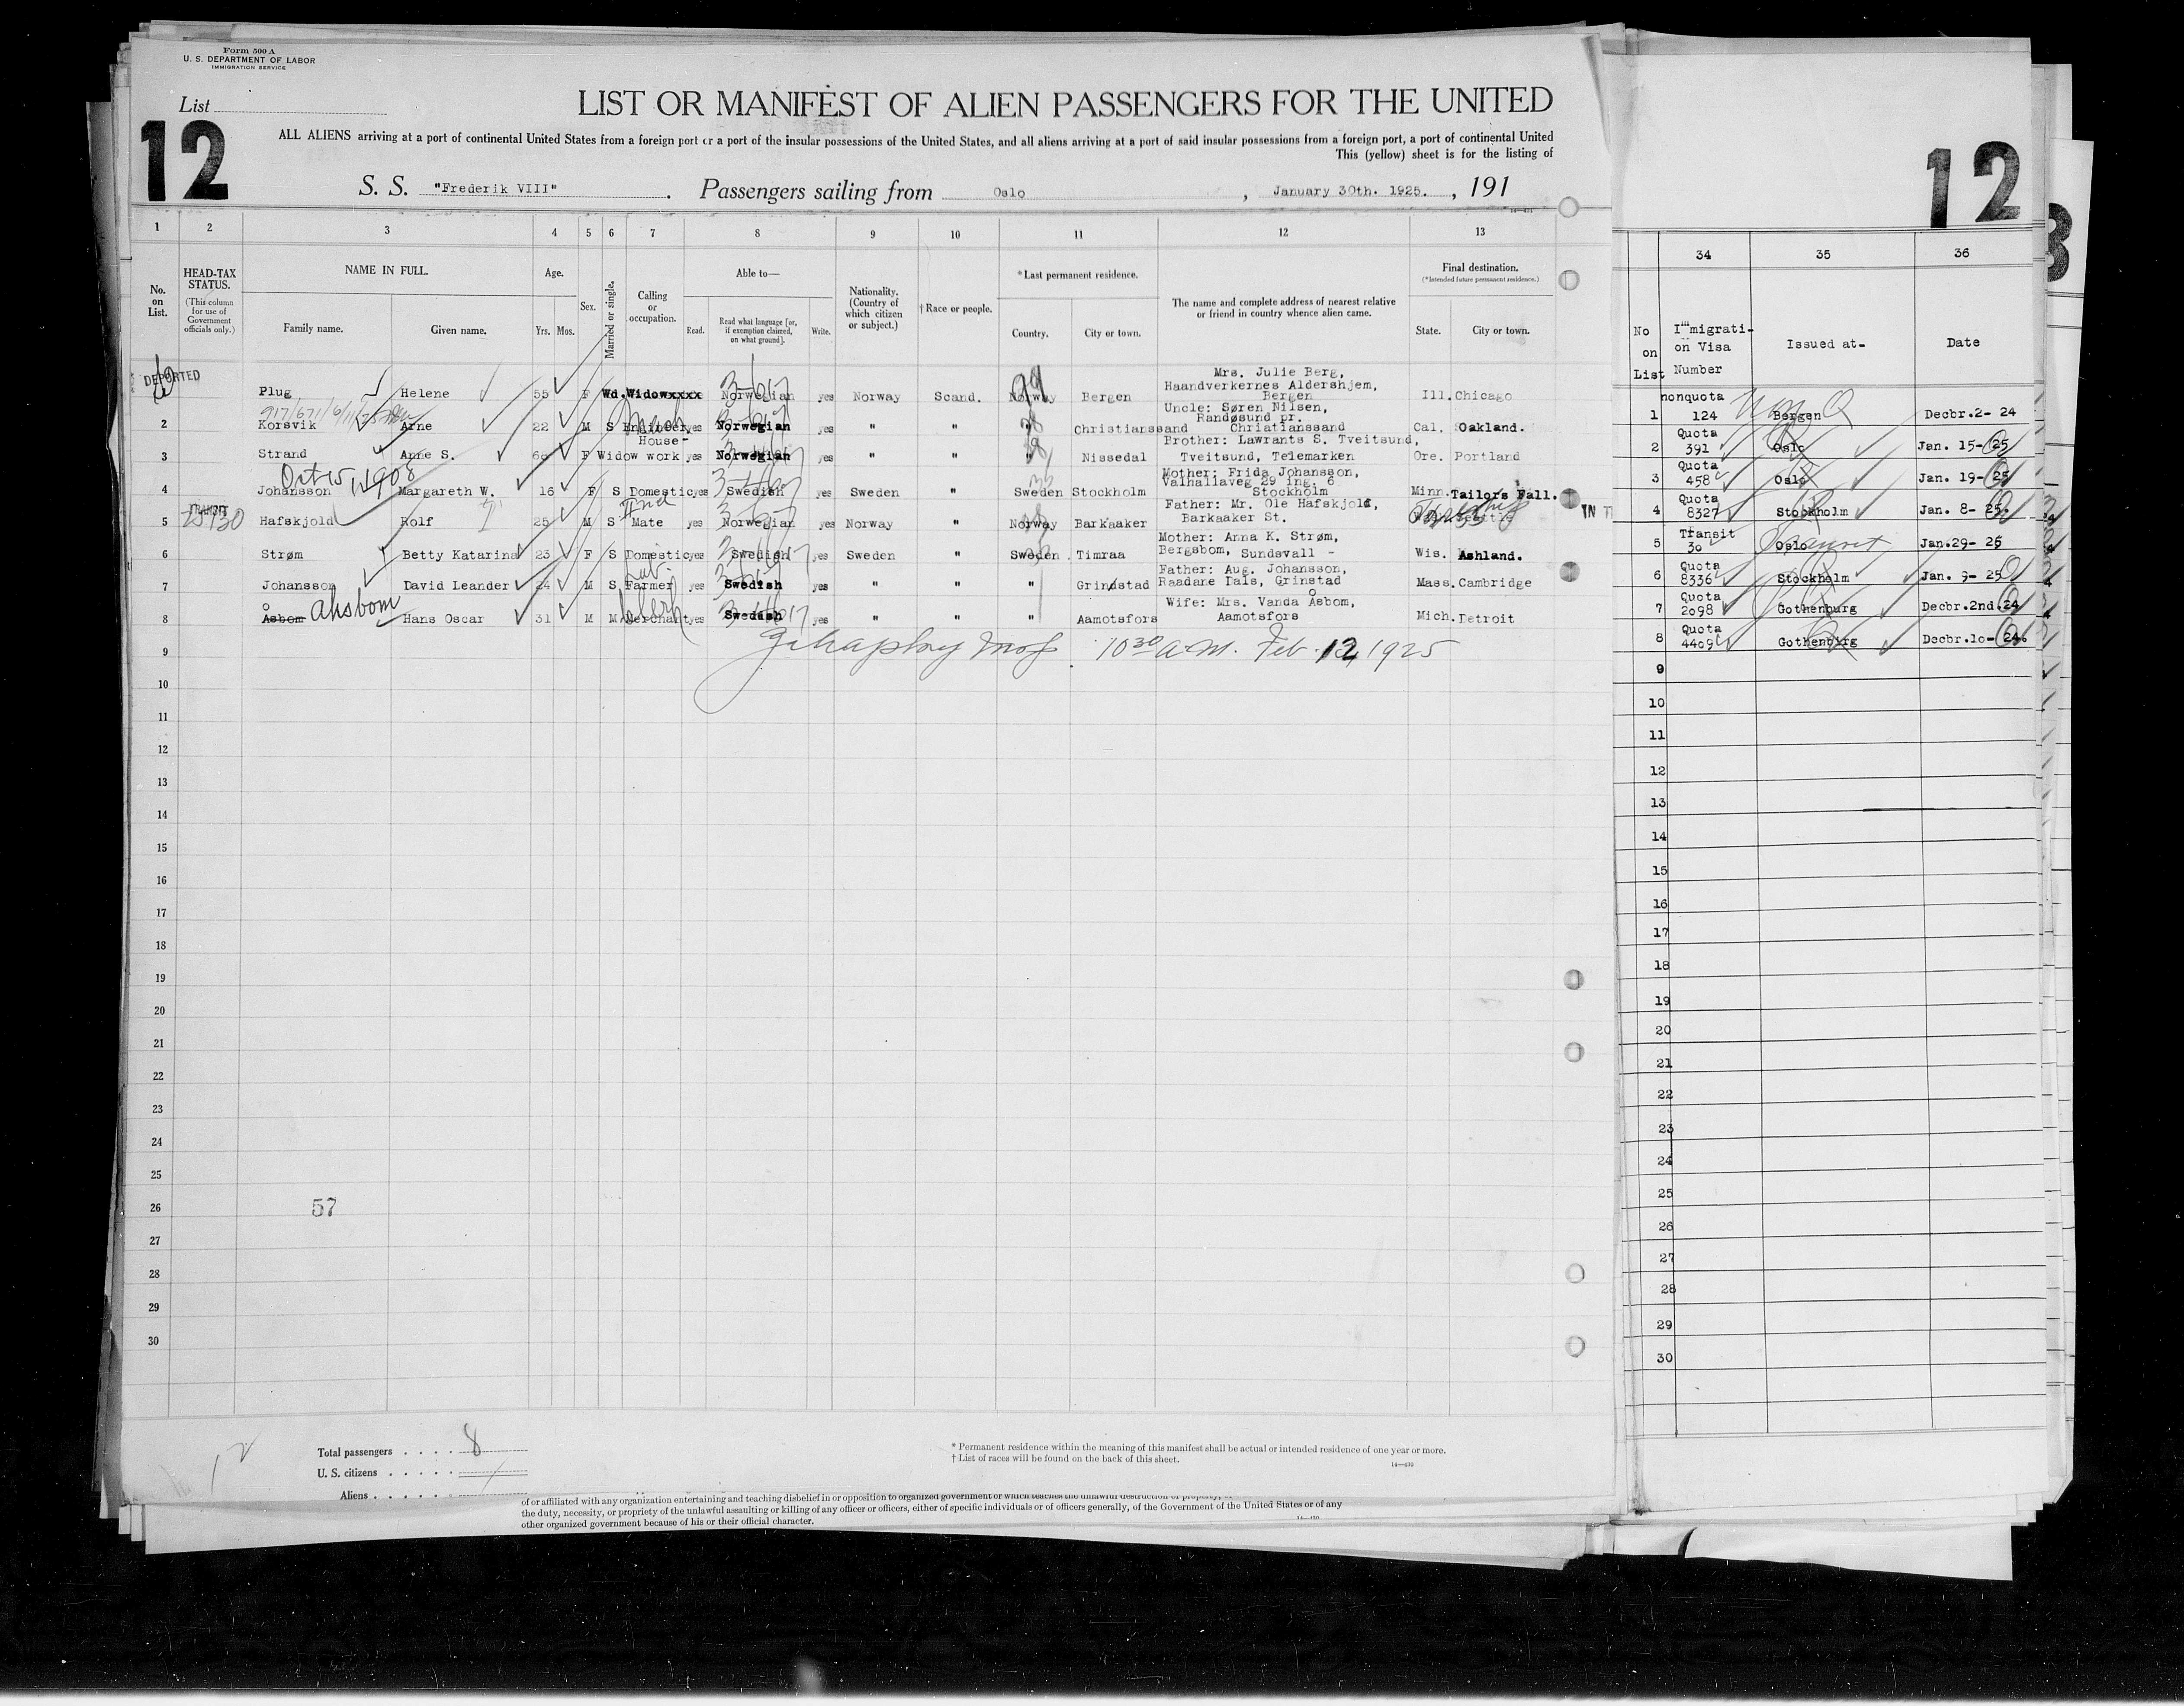 Form 500 A
U. S. DEPARTMENT OF LABOR
IMMIGRATION SERVICE
List
12
LIST OR MANIFEST OF ALIEN PASSENGERS FOR THE UNITED
ALL ALIENS arriving at a port of continental United States from a foreign port or a port of the insular possessions of the United States, and all aliens arriving at a port of said insular possessions from a foreign port, a port of continental United
This (yellow) sheet is for the listing of
S. S. "Frederik VIII". Passengers sailing from Oslo, January 30th. 1925., 191
1 2 3 4 5 6 7 8 9 10 11 12 13
No. on List.
HEAD-TAX STATUS.
(This column for use of Government officials only.)
NAME IN FULL.
Family name. Given name.
Age.
Yrs. Mos.
Sex.
Married or single.
Calling or occupation.
Able to—
Read. Read what language [or, if exemption claimed, on what ground]. Write.
Nationality. (Country of which citizen or subject.)
† Race or people.
*Last permanent residence.
Country. City or town.
The name and complete address of nearest relative or friend in country whence alien came.
Final destination.
(*Intended future permanent residence.)
State. City or town.
DEPORTED
Plug Helene 55 F Wd. Widowxxxx Norwegian yes Norway Scand. Norway Bergen Mrs. Julie Berg, Haandverkernes Aldershjem, Bergen Ill. Chicago
2 Korsvik Arne 22 M S Engineer yes Norwegian yes " " " Christianssand Uncle: Søren Nilsen, Randøsund pr. Christianssand Cal. Oakland.
3 Strand Anne S. 66 F Widow House-work yes Norwegian yes " " " Nissedal Brother: Lawrants S. Tveitsund, Tveitsund, Telemarken Ore. Portland
Oct 15, 1908
4 Johansson Margareth W. 16 F S Domestic yes Swedish yes Sweden " Sweden Stockholm Mother: Frida Johansson, Valhallaveg 29 ing. 6 Stockholm Minn. Tailors Fall.
TRANSIT
5 Hafskjold Rolf 25 M S 2nd Mate yes Norwegian yes Norway " Norway Barkaaker Father: Mr. Ole Hafskjold, Barkaaker St.
6 Strøm Betty Katarina 23 F S Domestic yes Swedish yes Sweden " Sweden Timraa Mother: Anna K. Strøm, Bergsbom, Sundsvall - Wis. Ashland.
7 Johansson David Leander 24 M S Farmer yes Swedish yes " " " Grinstad Father: Aug. Johansson, Raadane Dals, Grinstad Mass. Cambridge
8 Åsbom Ahsbom Hans Oscar 31 M M Merchant yes Swedish yes " " " Aamotsfors Wife: Mrs. Vanda Åsbom, Aamotsfors Mich. Detroit
9 10 30 A.M. Feb. 12, 1925
10
11
12
13
14
15
16
17
18
19
20
21
22
23
24
25
26 57
27
28
29
30
12
Total passengers . . . . 8
U. S. citizens . . . . .
Aliens . . . . . .
* Permanent residence within the meaning of this manifest shall be actual or intended residence of one year or more.
† List of races will be found on the back of this sheet.
14—430
of or affiliated with any organization entertaining and teaching disbelief in or opposition to organized government or which teaches the unlawful destruction of property,
the duty, necessity, or propriety of the unlawful assaulting or killing of any officer or officers, either of specific individuals or of officers generally, of the Government of the United States or of any
other organized government because of his or their official character.
12
34 35 36
No on List Immigration Visa Number Issued at- Date
1 nonquota 124 Bergen Decbr.2- 24
2 Quota 391 Oslo Jan. 15-25
3 Quota 458 Oslo Jan. 19-25
4 Quota 8327 Stockholm Jan. 8- 25.
5 Transit 30 Oslo Transit Jan.29- 25
6 Quota 8336 Stockholm Jan. 9- 25
7 Quota 2098 Gothenburg Decbr.2nd.24
8 Quota 4409 Gothenburg Decbr.10- 24.
9
10
11
12
13
14
15
16
17
18
19
20
21
22
23
24
25
26
27
28
29
30